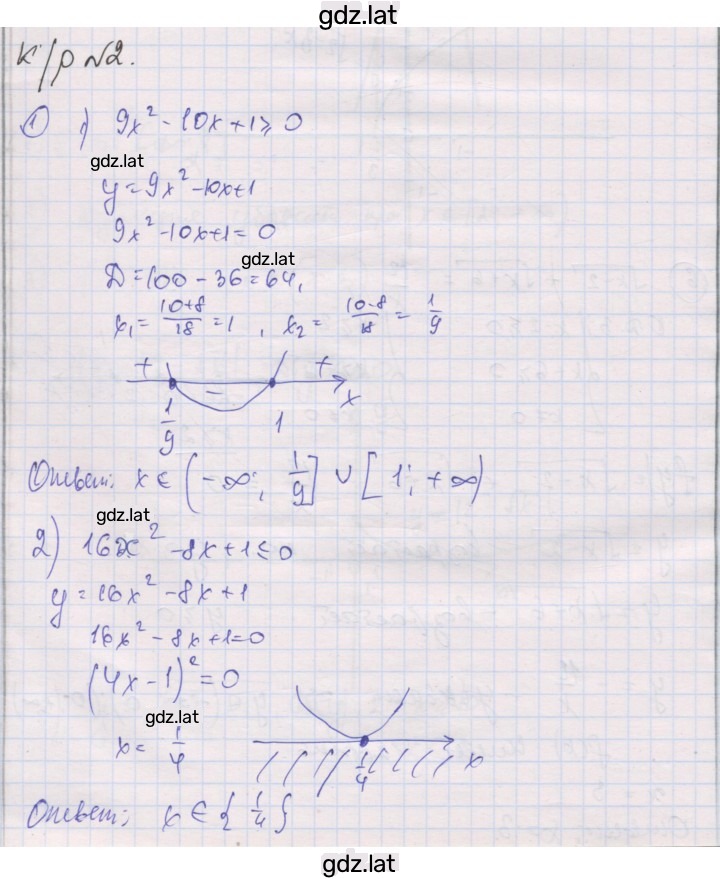 gdz.lat
К/р №2.
① 1) 9x² - 10x + 1 ≥ 0
gdz.lat
y = 9x² - 10x + 1
9x² - 10x + 1 = 0
gdz.lat
D = 100 - 36 = 64,
x₁ = (10+8)/18 = 1 , x₂ = (10-8)/18 = 1/9
+ - + x
1/9 1
Ответ: x ∈ (-∞; 1/9] ∪ [1; +∞)
gdz.lat
2) 16x² - 8x + 1 ≤ 0
y = 16x² - 8x + 1
16x² - 8x + 1 = 0
(4x - 1)² = 0
gdz.lat
x = 1/4
1/4 x
Ответ: x ∈ {1/4}
gdz.lat